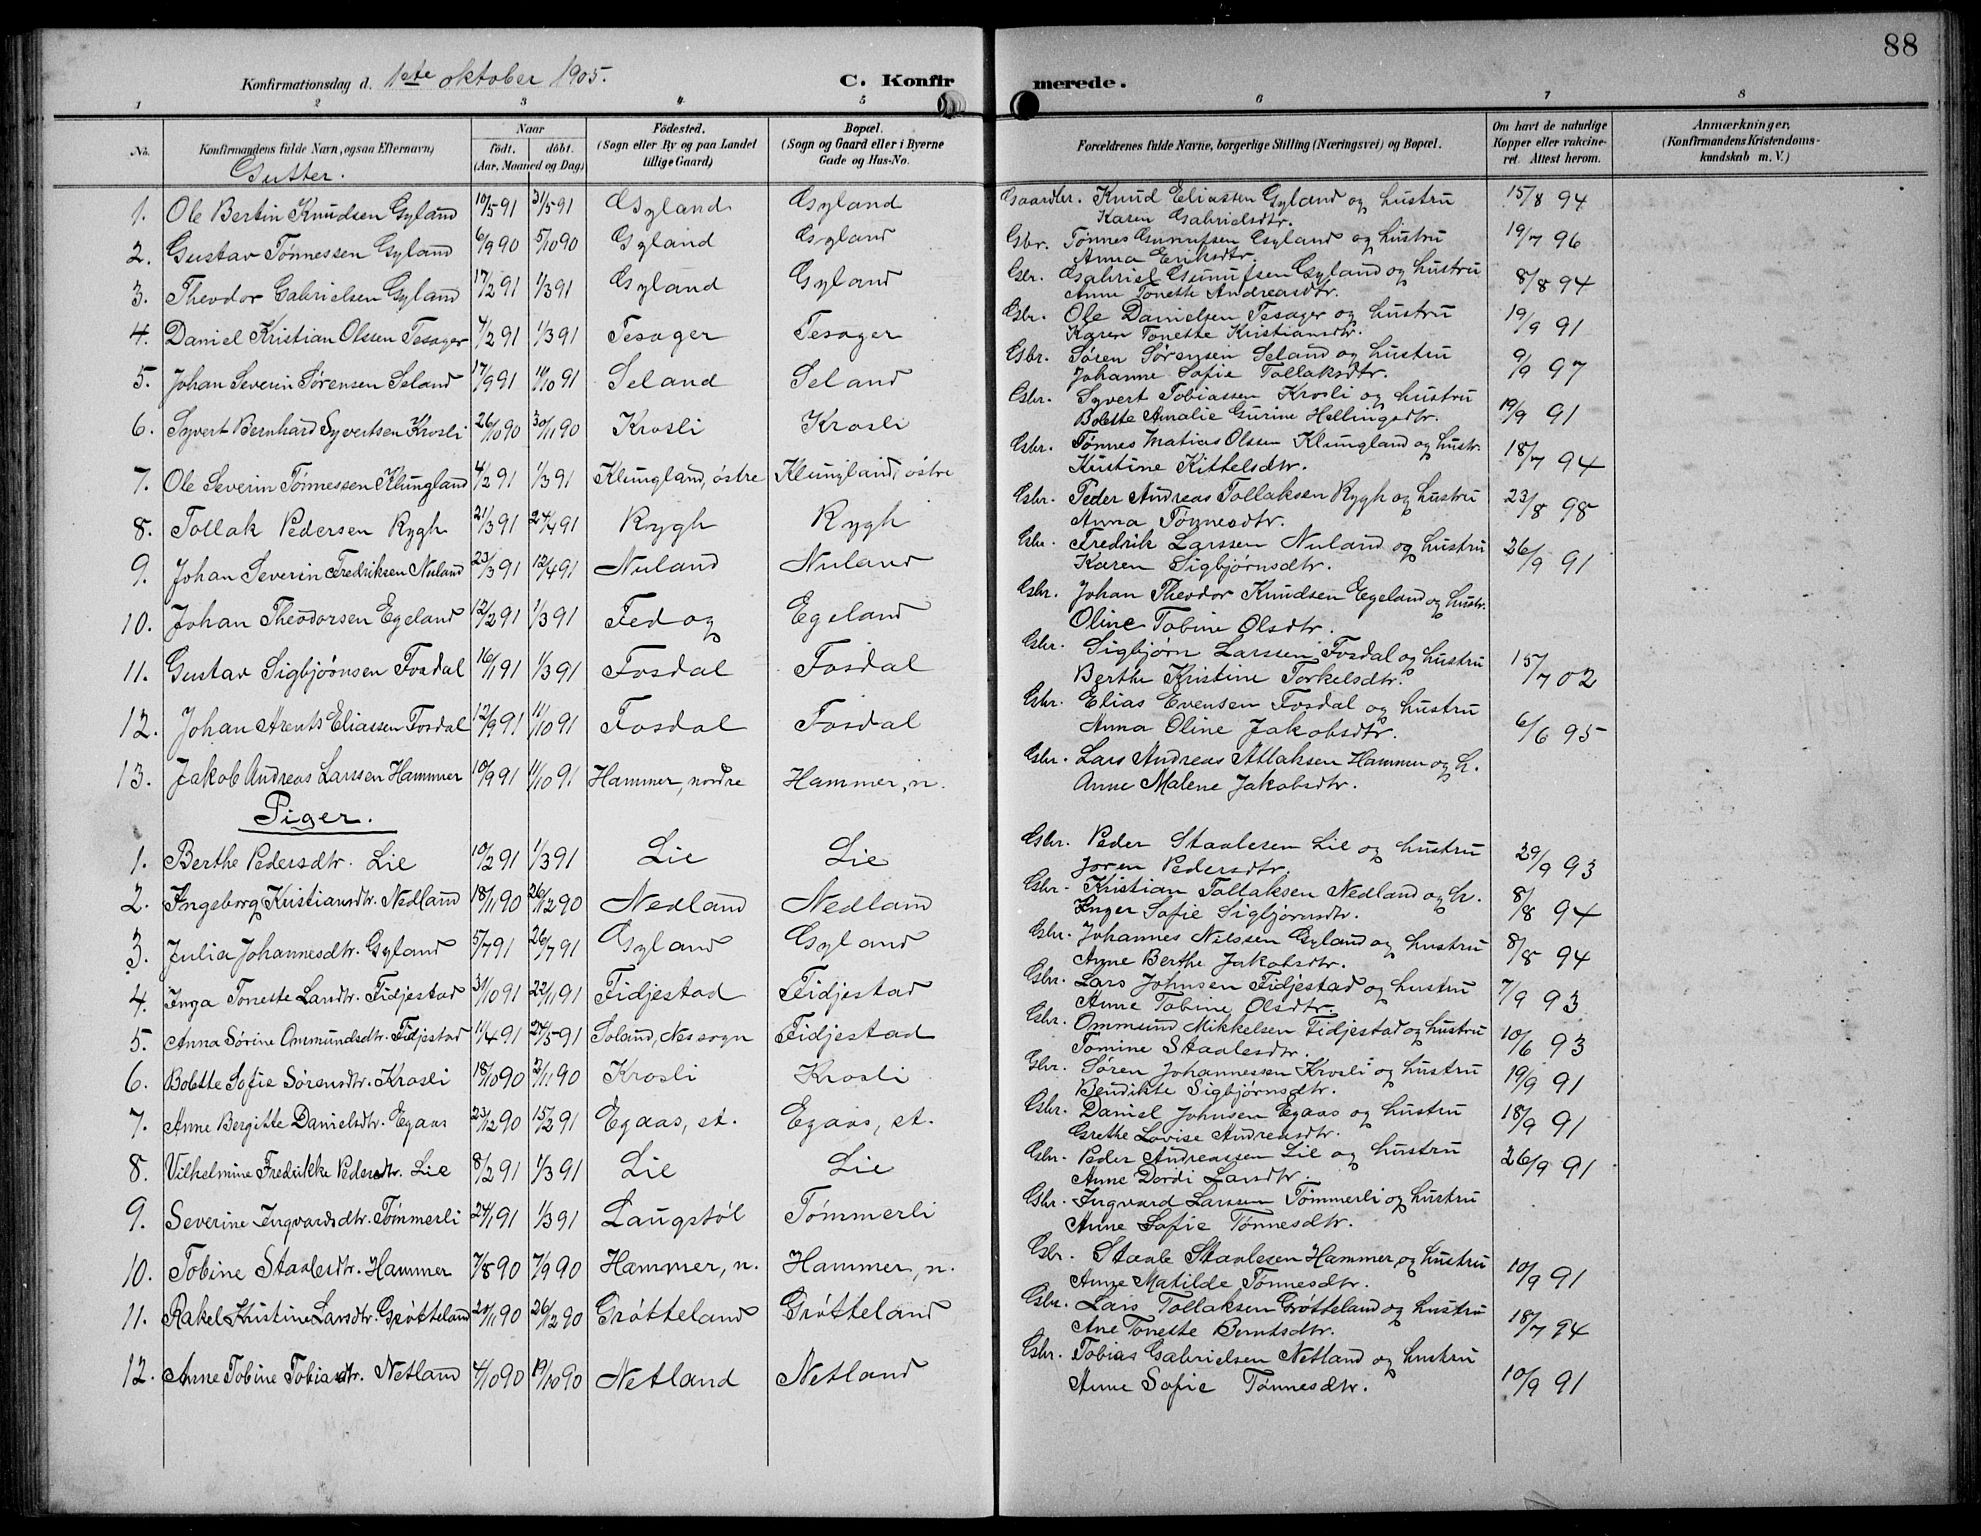 88
Konfirmationsdag d. 1ste oktober 1905.
C. Konfirmerede.
1 2 3 4 5 6 7 8
No.
Konfirmandens fulde Navn, ogsaa Efternavn)
Naar
födt. döbt.
(Aar, Maaned og Dag)
Födested.
(Sogn eller By og paa Landet
tillige Gaard)
Bopæl.
(Sogn og Gaard eller i Byerne
Gade og Hus-No.
Forældrenes fulde Navne, borgerlige Stilling (Næringsvei) og Bopæl.
Om havt de naturlige
Kopper eller vakcine-
ret. Attest herom.
Anmærkninger,
(Konfirmandens Kristendoms-
kundskab m. V.)
Gutter.
1. Ole Bertin Knudsen Gyland 10/5 91 31/5 91 Gyland Gyland Gaardbr. Knud Eliassen Gyland og hustru 15/8 94
Karen Gabrielsdtr.
2. Gustav Tønnessen Gyland 6/9 90 5/10 90 Gyland Gyland Gbr. Tønnes Gunufsen Gyland og hustru 19/7 96
Anna Eriksdtr.
3. Theodor Gabrielsen Gyland 17/2 91 1/3 91 Gyland Gyland Gbr. Gabriel Gunufsen Gyland og hustru 8/8 94
Anne Tonette Andreasdtr.
4. Daniel Kristian Olssen Tesager 4/2 91 1/3 91 Tesager Tesager Gbr. Ole Danielsen Tesager og hustru 19/9 91
Karen Tonette Kristiansdtr.
5. Johan Severin Sørensen Seland 17/9 91 11/10 91 Seland Seland Gbr. Søren Sørensen Seland og hustru 9/9 97
Johanne Sofie Tollaksdtr.
6. Syvert Bernhard Syvertsen Krosli 26/10 90 30/11 90 Krosli Krosli Gbr. Syvert Tobiassen Krosli og hustru 19/9 91
Bolette Amalie Gurine Hellingsdtr.
7. Ole Severin Tønnessen Klungland 4/2 91 1/3 91 Klungland, østre Klungland, østre Gbr. Tønnes Matias Olssen Klungland og hustr. 18/7 94
Kristine Kittelsdtr.
8. Tollak Pedersen Rygh 21/3 91 24/4 91 Rygh Rygh Gbr. Peder Andreas Tollaksen Rygh og hustru 23/8 98
Anna Tønnesdtr.
9. Johan Severin Fredriksen Nuland 23/3 91 12/4 91 Nuland Nuland Gbr. Fredrik Larssen Nuland og hustru 26/9 91
Karen Sigbjørnsdtr.
10. Johan Theodorsen Egeland 12/2 91 1/3 91 Fedog Egeland Gbr. Johan Theodor Knudsen Egeland og hustr.
Oline Tobine Olsdtr.
11. Gustav Sigbjøønsen Fosdal 16/1 91 1/3 91 Fosdal Fosdal Gbr. Sigbjørn Larssen Fosdal og hustru 15/7 02
Berthe Kristine Torkelsdtr.
12. Johan Arents Eliassen Fosdal 12/9 91 11/10 91 Fosdal Fosdal Gbr. Elias Evensen Fosdal og hustru 6/6 95
Anna Oline Jakobsdtr.
13. Jakob Andreas Larssen Hammer 10/9 91 11/10 91 Hammer, nordre Hammer, n. Gbr. Lars Andreas Atlaksen Hammer og h.
Anne Malene Jakobsdtr.
Piger.
1. Berthe Pedersdtr. Lie 10/2 91 1/3 91 Lie Lie Gbr. Peder Staalesen Lie og hustru 29/9 93
Joren Pedersdtr.
2. Ingeborg Kristiansdtr. Nedland 18/11 90 26/12 90 Nedland Nedland Gbr. Kristian Tollaksen Nedland og h. 8/8 94
Inger Sofie Sigbjørnsdtr.
3. Julia Johannesdtr. Gyland 5/7 91 26/7 91 Gyland Gyland Gbr. Johannes Nilssen Gyland og hustru 8/8 94
Anne Berthe Jakobsdtr.
4. Inga Tonette Larsdtr. Fidjestad 31/10 91 22/11 91 Fidjestad Fidjestad Gbr. Lars Johnsen Fidjestad og hustru 7/9 93
Anne Tobine Olsdtr.
5. Anna Sørine Ommundsdtr. Fidjestad 11/4 91 24/5 91 Soland, Nes sogn Fidjestad Gbr. Ommund Mikkelsen Fidjestad og hustru 10/6 93
Tomine Staalesdtr.
6. Bolette Sofie Sørensdtr. Krosli 18/10 90 2/11 90 Krosli Krosli Gbr. Søren Johannessen Krosli og hustru 19/9 91
Bendikte Sigbjørnsdtr.
7. Anne Bergitte Danielsdtr. Egaas 23/12 90 15/2 91 Egaas, st. Egaas, st. Gbr. Daniel Johnsen Egaas og hustru 18/9 91
Grethe Lovise Andreasdtr.
8. Vilhelmine Fredrikke Pedersdtr. Lie 8/2 91 1/3 91 Lie Lie Gbr. Peder Andreassen Lie og hustru 26/9 91
Anne Dordi Larsdtr.
9. Severine Ingvardsdtr. Tømmerli 24/1 91 1/3 91 Laugstøl Tømmerli Gbr. Ingvard Larssen Tømmerli og hustru
Anne Sofie Tønnesdtr.
10. Tobine Staalesdtr. Hammer 7/8 90 7/9 90 Hammer, n. Hammer, n. Gbr. Staale Staalesen Hammer og hustru 10/9 91
Anne Matilde Tønnesdtr.
11. Rakel Kristine Larsdtr. Grøtteland 20/11 90 26/12 90 Grøtteland Grøtteland Gbr. Lars Tollaksen Grøtteland og hustru 18/7 94
Ane Tonette Berntsdtr.
12. Anne Tobine Tobiasdtr. Netland 4/10 90 19/10 90 Netland Netland Gbr. Tobias Gabrielsen Netland og hustru 10/9 91
Anne Sofie Tønnesdtr.